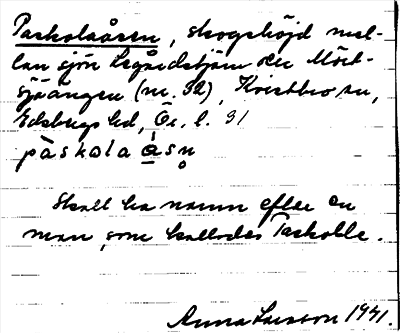 Paskolaåsen, skogshöjd mel-
lan sjön Lsgårdstjärn och Mört-
sjöängen (nr. 32), Kvistbro sn,
Edsbergs hd, Ör. l. 31
påskola åsn̥
Skall ha namn efter en
man, som kallades Paskolle.
Anna Larsson 1941.